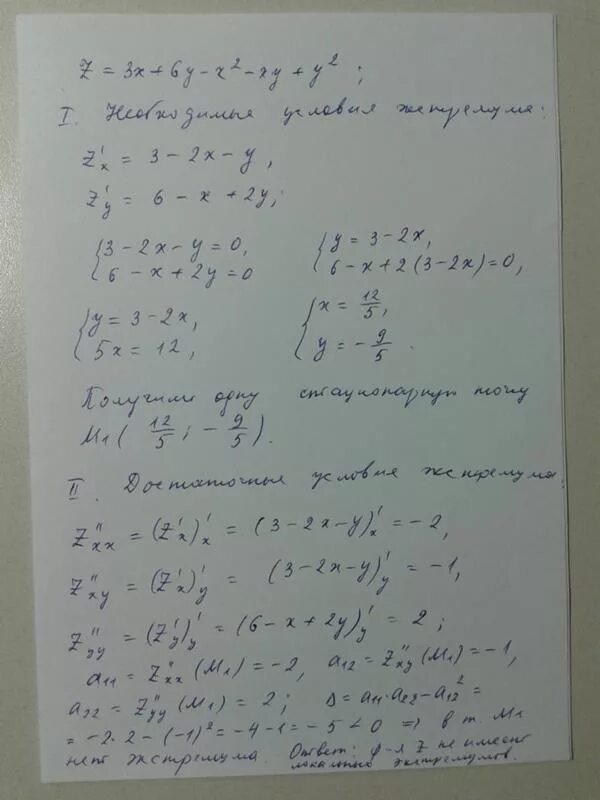 z = 3x + 6y − x² − xy + y² ;
I. Необходимые условия экстремума:
z'x = 3 − 2x − y,
z'y = 6 − x + 2y;
{3 − 2x − y = 0, {y = 3 − 2x,
{6 − x + 2y = 0 {6 − x + 2(3 − 2x) = 0,
{y = 3 − 2x, {x = 12/5,
{5x = 12, {y = − 9/5.
Получили одну стационарную точку
M₁( 12/5 ; − 9/5 ).
II. Достаточные условия экстремума:
z''xx = (z'x)'x = (3 − 2x − y)'x = −2,
z''xy = (z'x)'y = (3 − 2x − y)'y = −1,
z''yy = (z'y)'y = (6 − x + 2y)'y = 2;
a₁₁ = z''xx (M₁) = −2, a₁₂ = z''xy (M₁) = −1,
a₂₂ = z''yy (M₁) = 2; Δ = a₁₁·a₂₂ − a₁₂² =
= −2·2 − (−1)² = −4 − 1 = −5 < 0 ⇒ в т. M₁
нет экстремума. Ответ: ф-я z не имеет
локальных экстремумов.